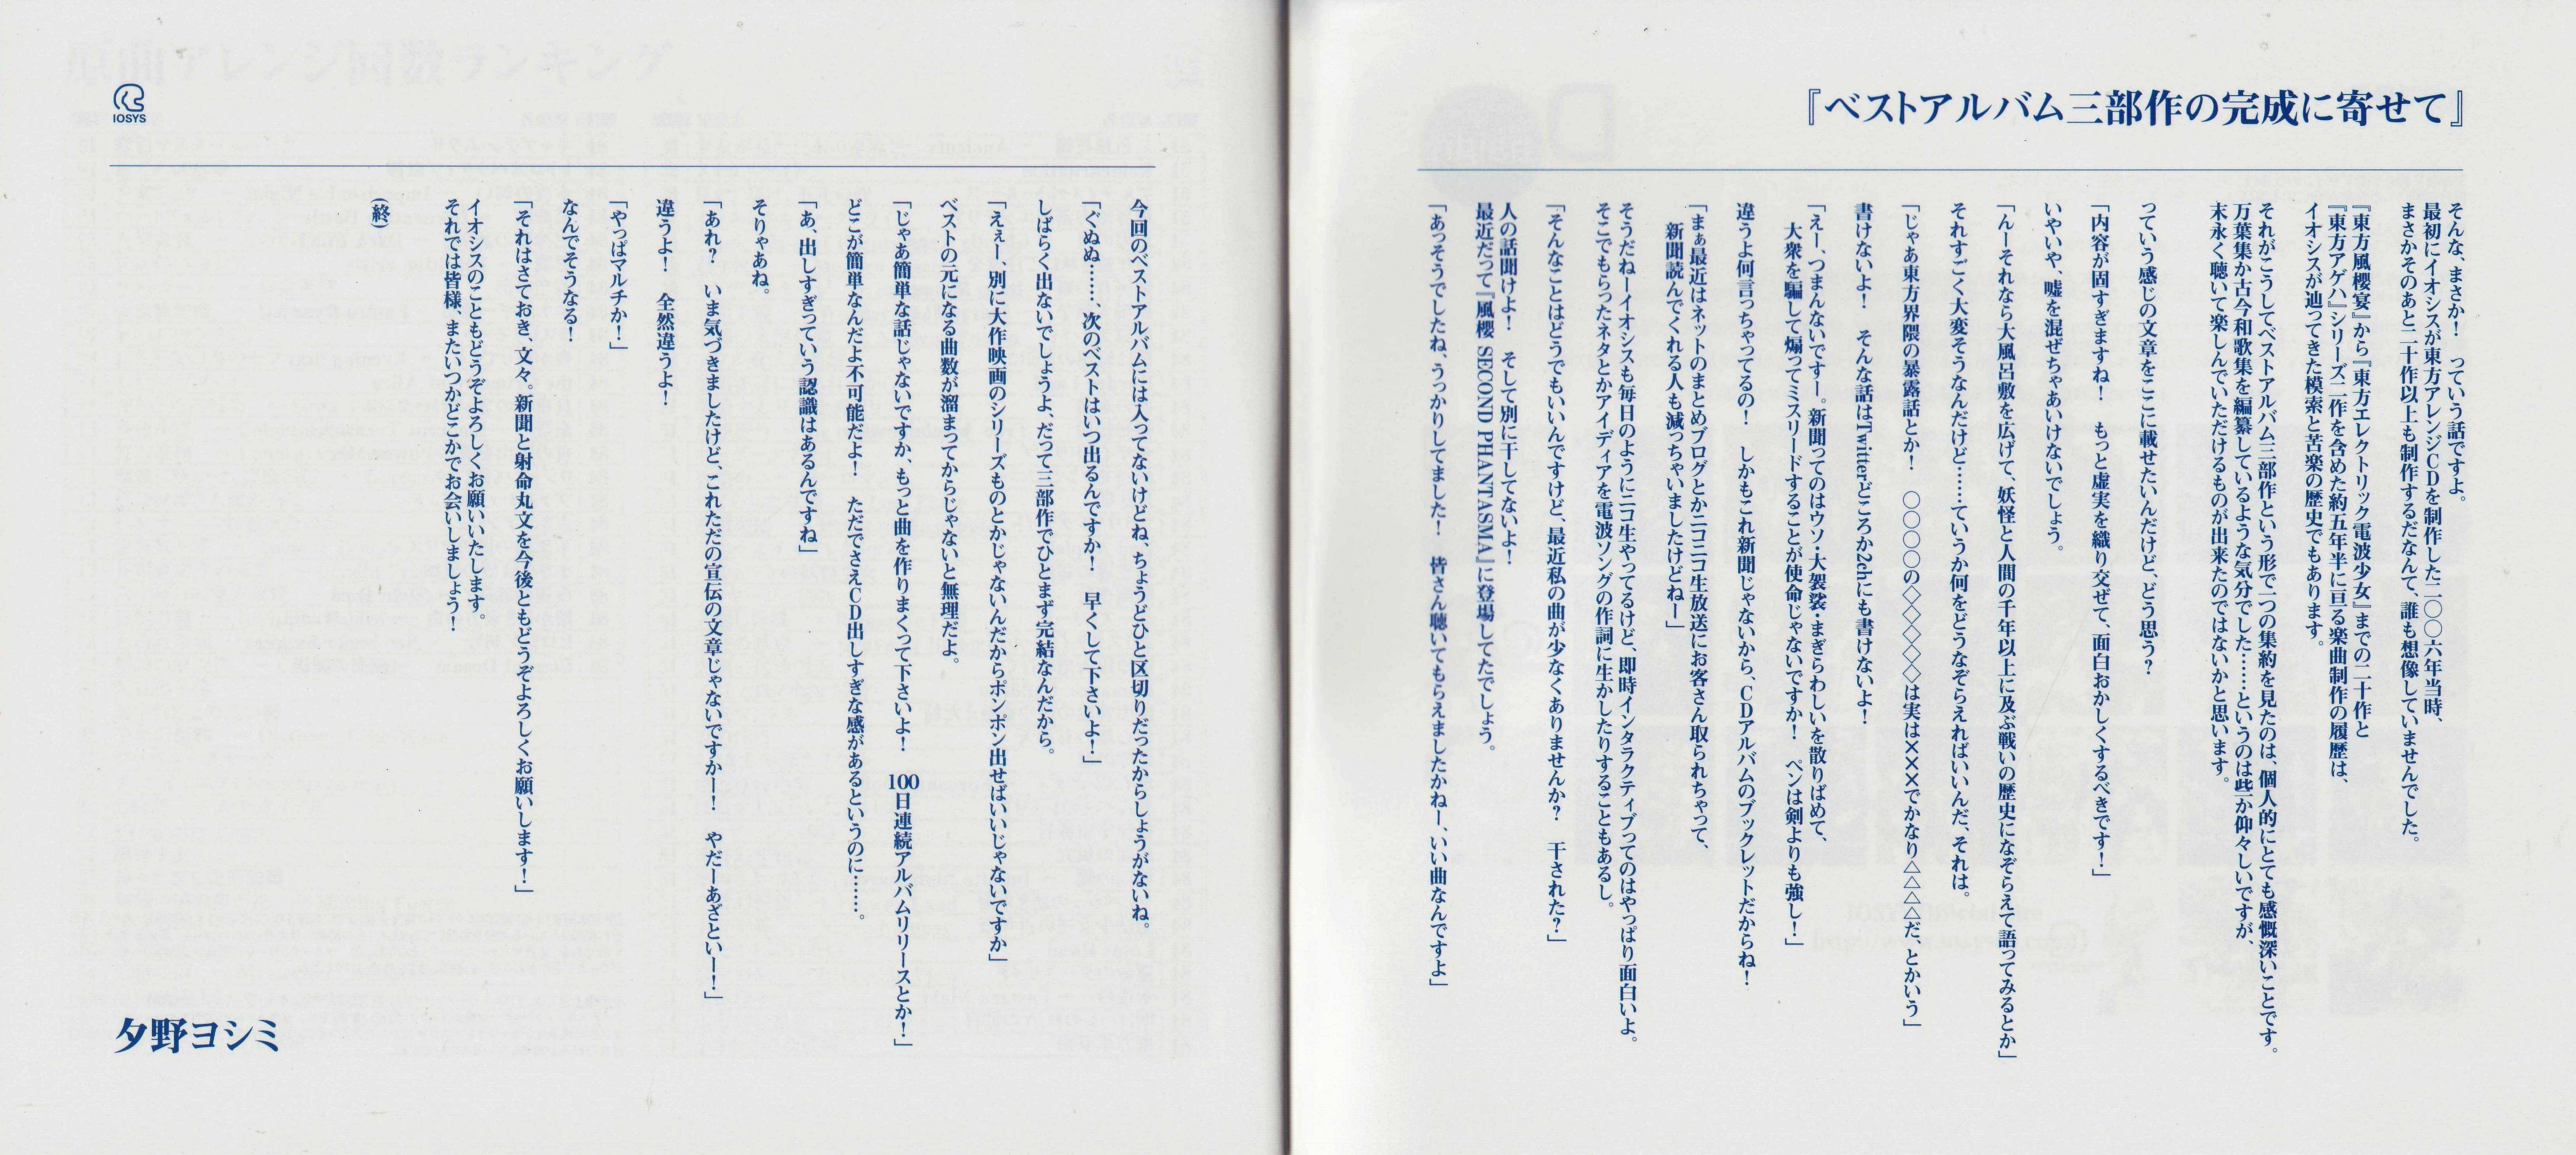 『ベストアルバム三部作の完成に寄せて』
そんな、まさか！　っていう話ですよ。
最初にイオシスが東方アレンジCDを制作した二〇〇六年当時、
まさかそのあと二十作以上も制作するだなんて、誰も想像していませんでした。
『東方風櫻宴』から『東方エレクトリック電波少女』までの二十作と
『東方アゲハ』シリーズ二作を含めた約五年半に亘る楽曲制作の履歴は、
イオシスが辿ってきた模索と苦楽の歴史でもあります。
それがこうしてベストアルバム三部作という形で一つの集約を見たのは、個人的にとても感慨深いことです。
万葉集か古今和歌集を編纂しているような気分でした……というのは些か仰々しいですが、
末永く聴いて楽しんでいただけるものが出来たのではないかと思います。
っていう感じの文章をここに載せたいんだけど、どう思う？
「内容が固すぎますね！　もっと虚実を織り交ぜて、面白おかしくするべきです！」
いやいや、嘘を混ぜちゃあいけないでしょう。
「んーそれなら大風呂敷を広げて、妖怪と人間の千年以上に及ぶ戦いの歴史になぞらえて語ってみるとか」
それすごく大変そうなんだけど……ていうか何をどうなぞらえればいいんだ、それは。
「じゃあ東方界隈の暴露話とか！　〇〇〇〇の◇◇◇◇◇は実は×××でかなり△△△△だ、とかいう」
書けないよ！　そんな話はTwitterどころか2chにも書けないよ！
「えー、つまんないですー。新聞ってのはウソ・大袈裟・まぎらわしいを散りばめて、
大衆を騙して煽ってミスリードすることが使命じゃないですか！　ペンは剣よりも強し！」
違うよ何言っちゃってるの！　しかもこれ新聞じゃないから、CDアルバムのブックレットだからね！
「まぁ最近はネットのまとめブログとかニコニコ生放送にお客さん取られちゃって、
新聞読んでくれる人も減っちゃいましたけどねー」
そうだねーイオシスも毎日のようにニコ生やってるけど、即時インタラクティブってのはやっぱり面白いよ。
そこでもらったネタとかアイディアを電波ソングの作詞に生かしたりすることもあるし。
「そんなことはどうでもいいんですけど、最近私の曲が少なくありませんか？　干された？」
人の話聞けよ！　そして別に干してないよ！
最近だって『風櫻 SECOND PHANTASMA』に登場してたでしょう。
「あっそうでしたね、うっかりしてました！　皆さん聴いてもらえましたかねー、いい曲なんですよ」
IOSYS
今回のベストアルバムには入ってないけどね、ちょうどひと区切りだったからしょうがないね。
「ぐぬぬ……、次のベストはいつ出るんですか！　早くして下さいよ！」
しばらく出ないでしょうよ、だって三部作でひとまず完結なんだから。
「えぇー、別に大作映画のシリーズものとかじゃないんだからポンポン出せばいいじゃないですか」
ベストの元になる曲数が溜まってからじゃないと無理だよ。
「じゃあ簡単な話じゃないですか、もっと曲を作りまくって下さいよ！　100日連続アルバムリリースとか！」
どこが簡単なんだよ不可能だよ！　ただでさえCD出しすぎな感があるというのに……。
「あ、出しすぎっていう認識はあるんですね」
そりゃあね。
「あれ？　いま気づきましたけど、これただの宣伝の文章じゃないですかー！　やだーあざといー！」
違うよ！　全然違うよ！
「やっぱマルチか！」
なんでそうなる！
「それはさておき、文々。新聞と射命丸文を今後ともどうぞよろしくお願いします！」
イオシスのこともどうぞよろしくお願いいたします。
それでは皆様、またいつかどこかでお会いしましょう！
（終）
夕野ヨシミ